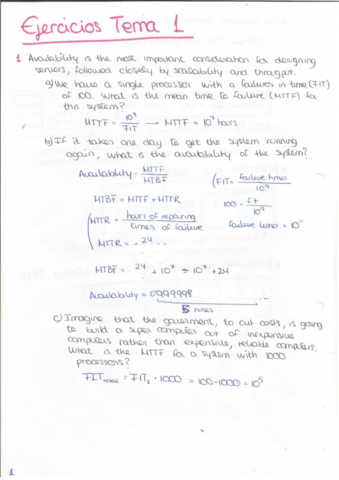 Ejercicios Tema 1
1 Availability is the most important consideration for designing
servers, followed closely by scalability and throughput.
a) We have a single processor with a failures in time (FIT)
of 100. What is the mean time to failure (MTTF) for
this system?
MTTF = 10⁹/FIT → MTTF = 10⁷ hours
b) If it takes one day to get the system running
again, what is the availability of the system?
Availability = MTTF/MTBF
(FIT = failure times/10⁹
MTBF = MTTF + MTTR
100 = f.t/10⁹
MTTR = hours of repairing/times of failure
failure times = 10¹¹
MTTR = 24
MTBF = 24 + 10⁷ = 10⁷ + 24
Availability = 0,9999998
5 nines
c) Imagine that the government, to cut costs, is going
to build a super computer out of inexpensive
computers rather than expensive, reliable computers.
What is the MTTF for a system with 1000
processors?
= FIT₁ · 1000 = 100 · 1000 = 10⁵
1